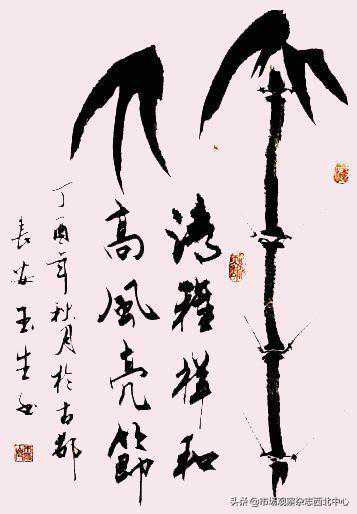 清雅祥和
高風亮節
丁酉年秋月於古都
長安玉生书
头条 @市场观察杂志西北中心